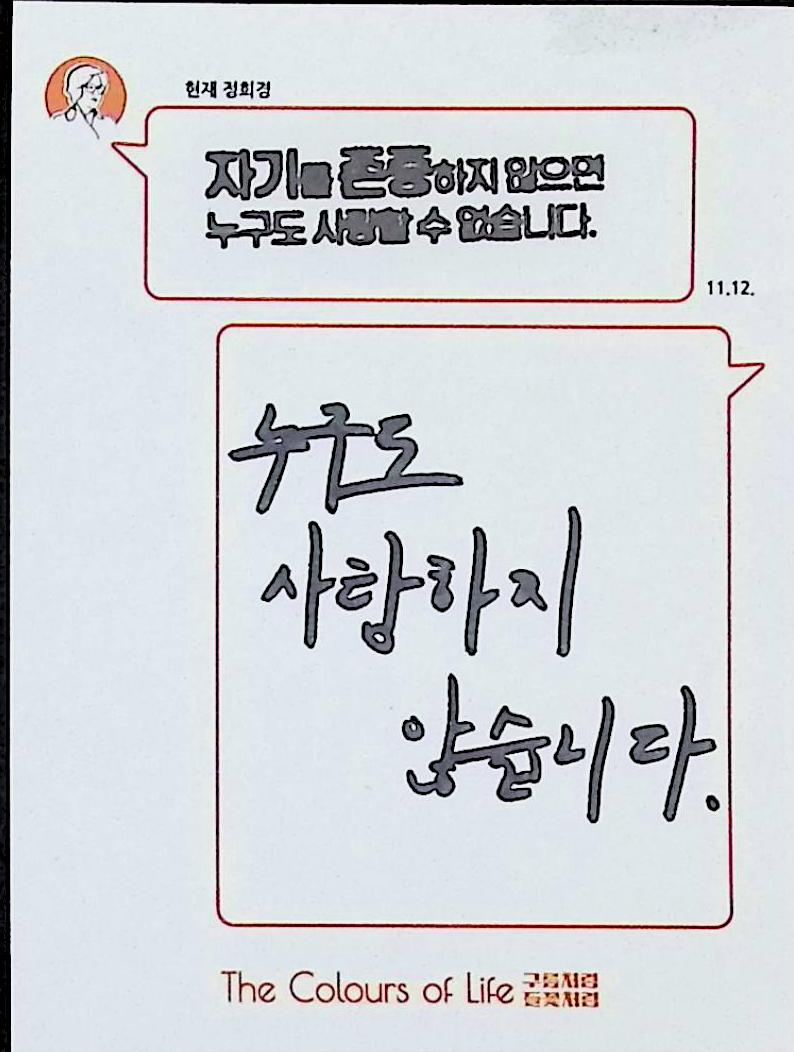 현재 정희경
자기를 존중하지 않으면
누구도 사랑할 수 없습니다.
11.12.
누구도
사랑하지
않습니다.
The Colours of Life 구름처럼
들꽃처럼